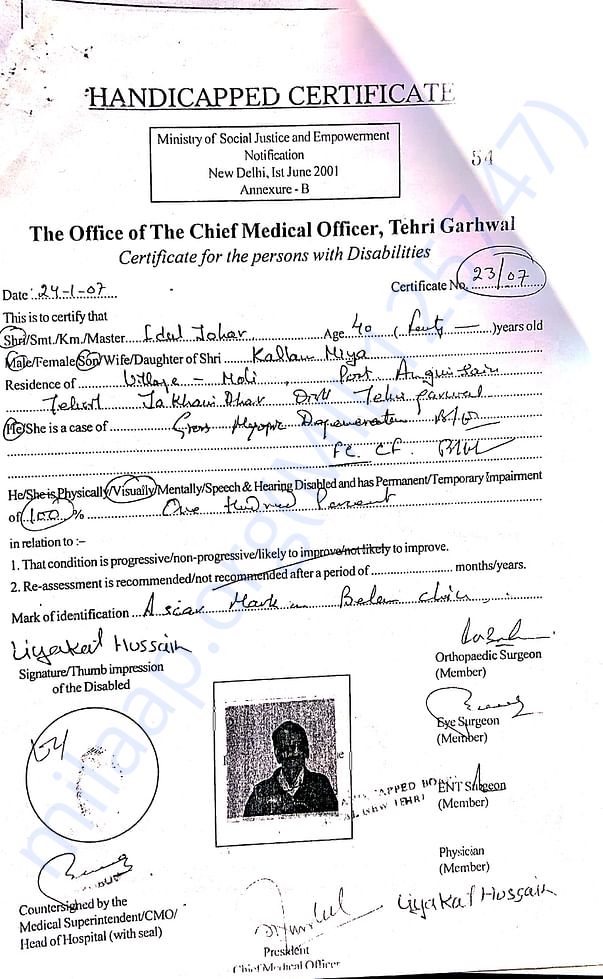 HANDICAPPED CERTIFICATE
Ministry of Social Justice and Empowerment
Notification
New Delhi, Ist June 2001
Annexure - B
54
The Office of The Chief Medical Officer, Tehri Garhwal
Certificate for the persons with Disabilities
Date : 24-1-07 Certificate No. 23/07
This is to certify that
Shri/Smt./Km./Master Idul Johar Age 40 ( )years old
Male/Female/Son/Wife/Daughter of Shri Kallan Miya
Residence of Village - Moli, Post
Jakhani Dhar Tehri Garwal
He/She is a case of Gross Myopic Degeneration
FC. CF.
He/She is Physically/Visually/Mentally/Speech & Hearing Disabled and has Permanent/Temporary Impairment
of 100 % One Hundred Percent
in relation to :–
1. That condition is progressive/non-progressive/likely to improve/not likely to improve.
2. Re-assessment is recommended/not recommended after a period of months/years.
Mark of identification A scar Mark Below chin
Liyakat Hussain
Signature/Thumb impression
of the Disabled
Orthopaedic Surgeon
(Member)
Eye Surgeon
(Member)
ENT Surgeon
(Member)
Physician
(Member)
Liyakat Hussain
Countersigned by the
Medical Superintendent/CMO/
Head of Hospital (with seal)
President
Chief Medical Officer
milaap.org